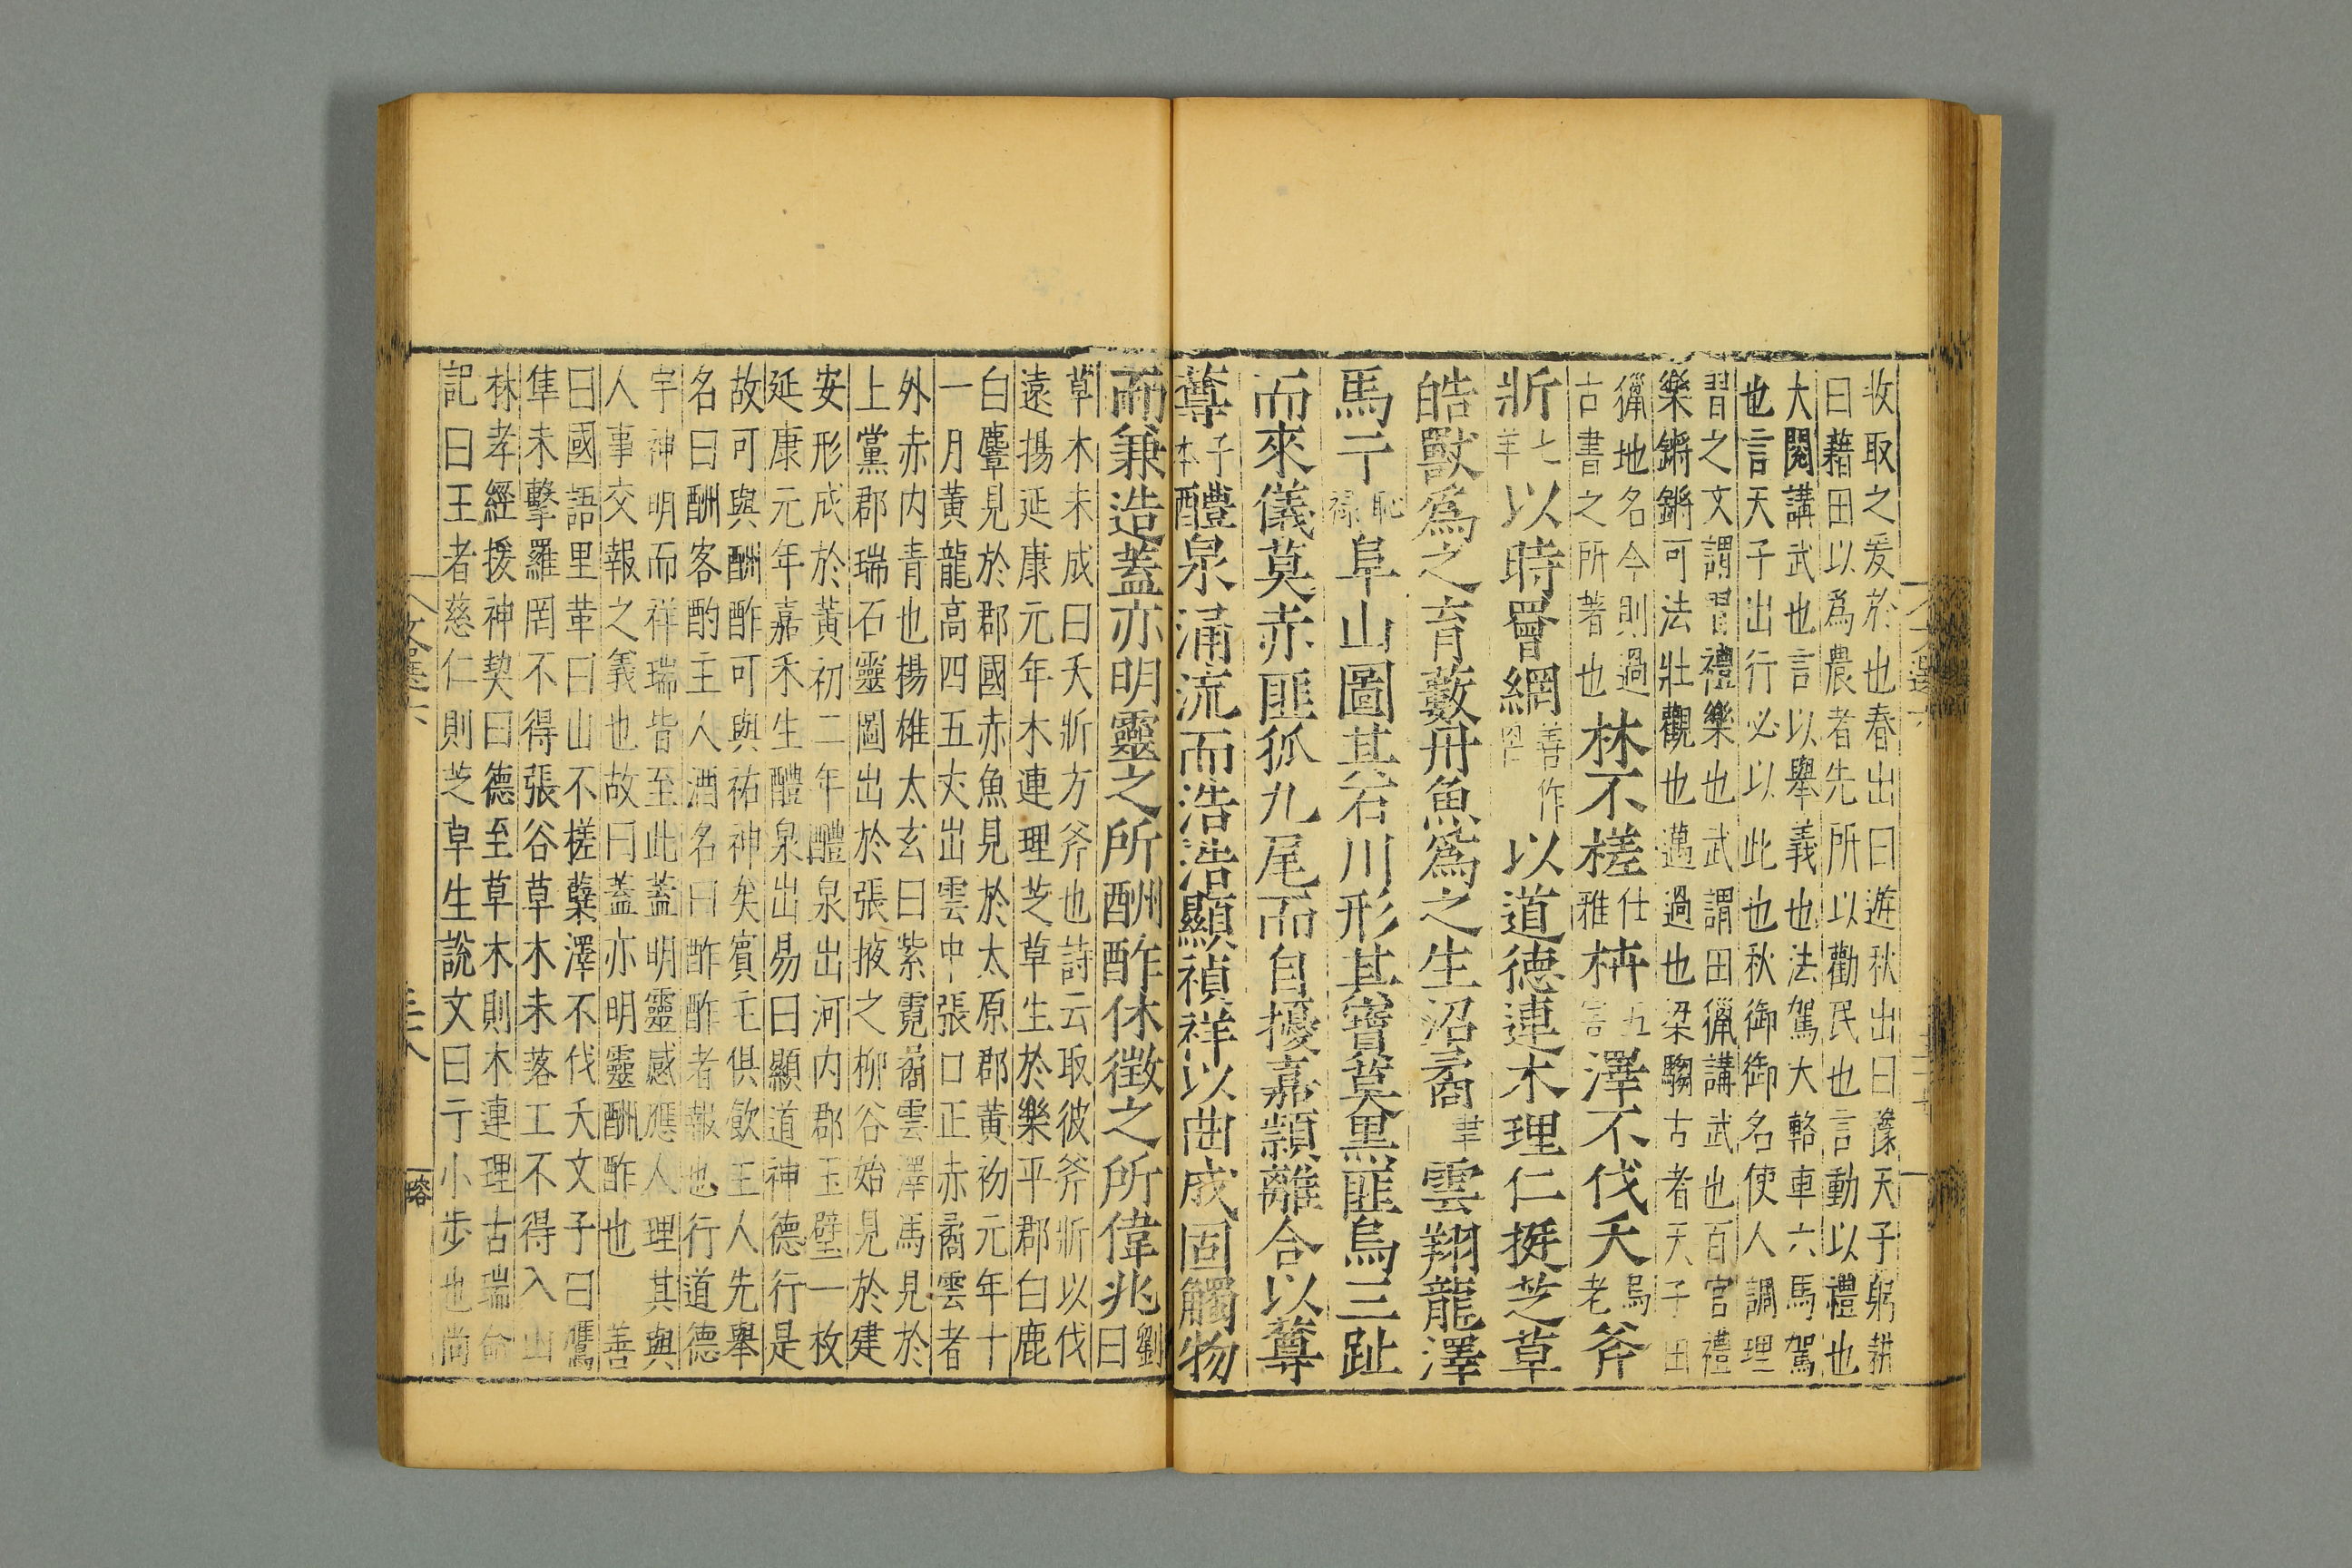 收取之爰於也春出曰遊秋出曰豫天子躬耕
曰藉田以爲農者先所以勸民也言動以禮也
大閱講武也言以舉義也法駕大輅車六馬駕
也言天子出行必以此也秋御御名使人調理
習之文謂習禮樂也武謂田獵講武也百官禮
樂鏘鏘可法壯觀也邁過也梁騶古者天子田
獵地名今則過
古書之所著也
林不槎
仕
雅
枿
五
言
澤不伐夭
烏
老
斧
斨
七
羊
以時罾網
善作
罟
以道德連木理仁挺芝草
皓獸爲之育藪丹魚爲之生沼矞
聿
雲翔龍澤
馬亍
恥
祿
阜山圖其石川形其寶莫黑匪烏三趾
而來儀莫赤匪狐九尾而自擾嘉穎離合以蓴
蓴
子
本
醴泉涌流而浩浩顯禎祥以曲成固觸物
而兼造蓋亦明靈之所酬酢休徵之所偉兆
劉
曰
草木未成曰夭斨方斧也詩云取彼斧斨以伐
遠揚延康元年木連理芝草生於樂平郡白鹿
白麞見於郡國赤魚見於太原郡黃初元年十
一月黃龍高四五丈出雲中張口正赤矞雲者
外赤内青也揚雄太玄曰紫霓矞雲澤馬見於
上黨郡瑞石靈圖出於張掖之柳谷始見於建
安形成於黃初二年醴泉出河内郡玉璧一枚
延康元年嘉禾生醴泉出易曰顯道神德行是
故可與酬酢可與祐神矣賓主俱飲主人先舉
名曰酬客酌主人酒名曰酢酢者報也行道德
宇神明而祥瑞皆至此蓋明靈感應人理其與
人事交報之義也故曰蓋亦明靈酬酢也 善
曰國語里革曰山不槎蘖澤不伐夭文子曰鷹
隼未擊羅罔不得張谷草木未落工不得入山
林孝經援神契曰德至草木則木連理古瑞命
記曰王者慈仁則芝草生說文曰亍小步也尚
文選六
三十八